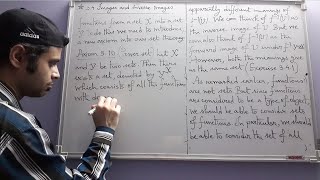 * 3.4 Images and Inverse Images
functions from a set X into a set
Y. To do this we need to introduce
a new axiom into our set theory
Axiom 3.10 (Power set) Let X and
Y be two sets. Then there
exists a set, denoted by Y^X
which consists of all the functions
with do
apparently different meanings of
We can think of f^-1(U) as
the inverse image of U. But
forward image of U under f^-1
However, both of the meanings give
us the same set (Exercise 3.4.1)
As remarked earlier, functions
are not sets. But since functions
are considered to be a type of object,
we should be able to consider sets
of functions. In particular, we should
be able to consider the set of all